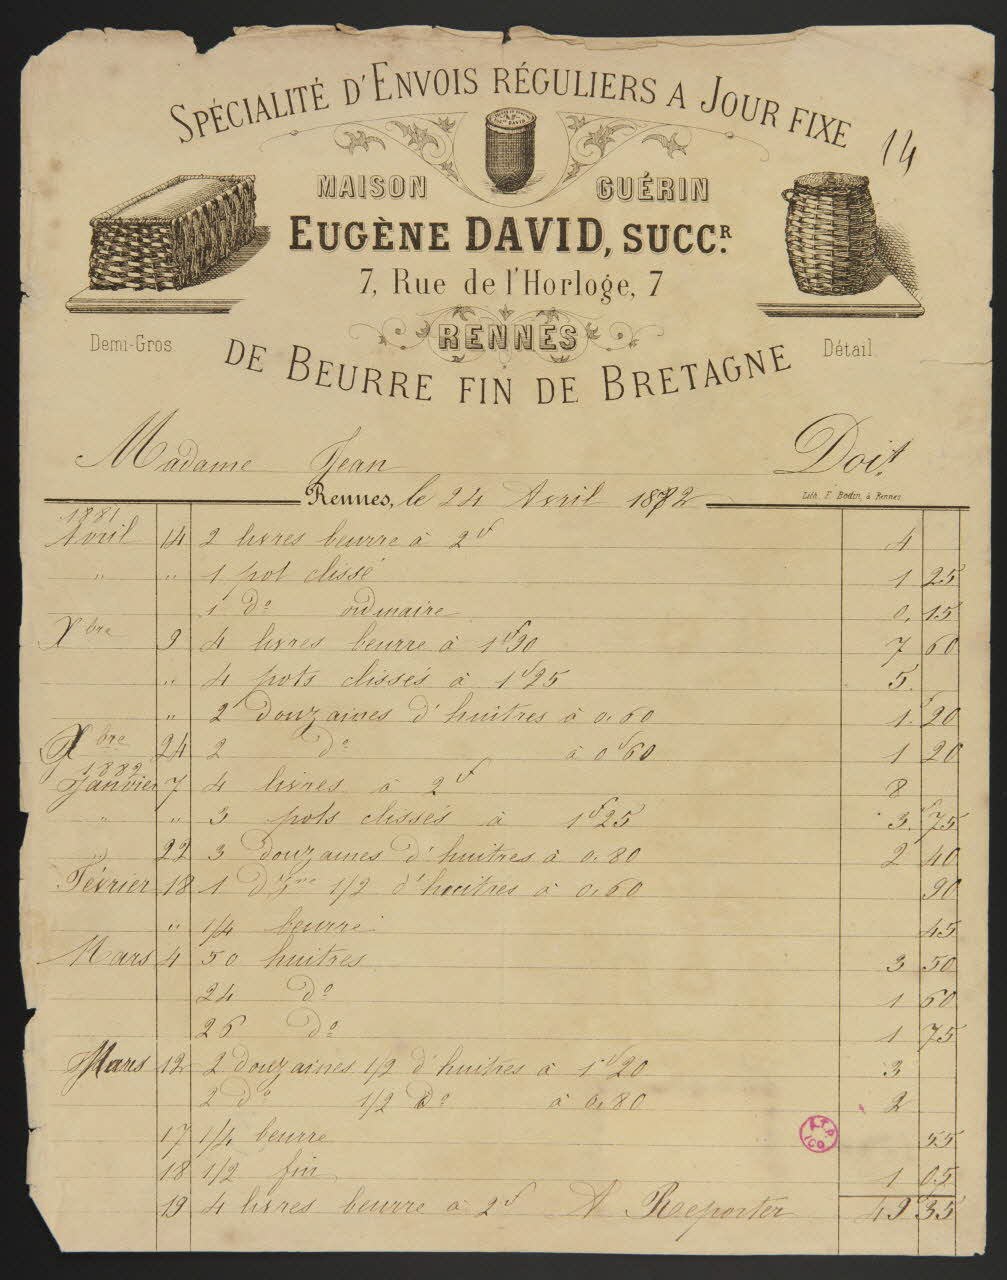 SPÉCIALITÉ D'ENVOIS RÉGULIERS A JOUR FIXE
14
MAISON GUÉRIN
EUGÈNE DAVID, SUCCR.
7, Rue de l'Horloge, 7
RENNES
Demi-Gros
Détail
DE BEURRE FIN DE BRETAGNE
Madame Jean Doit
Rennes, le 24 Avril 1882
Lith. F. Bodin, à Rennes
1881
Avril 14 2 livres beurre à 2f 4
" " 1 pot clissé 1 25
1 do ordinaire 0,15
Xbre 9 4 livres beurre à 1f90 7 60
" 4 pots clissés à 1f25 5.
" 2 douzaines d'huitres à 0.60 1.20
Xbre 24 2 do à 0f60 1 20
1882
Janvier 7 4 livres à 2f 8
" " 3 pots clissés à 1f25 3.75
" 22 3 douzaines d'huitres à 0.80 2 40
Février 18 1 dzne 1/2 d'huitres à 0.60 90
" 1/4 beurre 45
Mars 4 50 huitres 3 50
24 do 1 60
26 do 1 75
Mars 12 2 douzaines 1/2 d'huitres à 1f20 3
2 do 1/2 do à 0.80 2
17 1/4 beurre 55
18 1/2 fin 1 05
19 4 livres beurre à 2f A Reporter 49 35
A.T.P